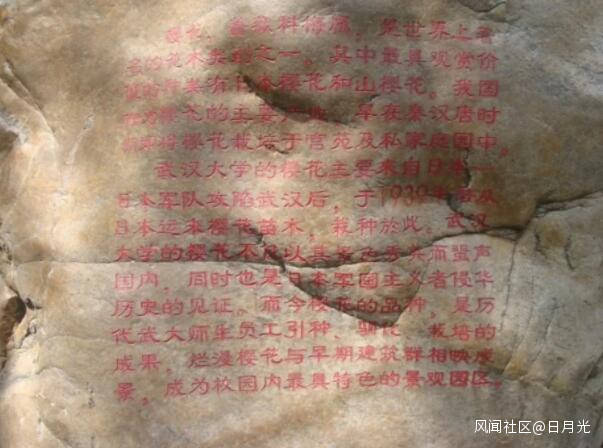 樱花，蔷薇科梅属，是世界上著
名的花木类型之一。其中最具观赏价
值的种类有日本樱花和山樱花。我国
樱花的主要产地，早在秦汉唐时
将樱花栽培于宫苑及私家庭园中。
武汉大学的樱花主要来自日本—
日本军队攻陷武汉后，于1939年春从
日本运来樱花苗木，栽种於此。武汉
大学的樱花不仅以其而蜚声
国内，同时也是日本军国主义者侵华
历史的见证。而今樱花的品种，是历
代武大师生员工引种、驯化、栽培的
成果，烂漫樱花与早期建筑群相映成
景，成为校园内最具特色的景观园区。
风闻社区@日月光